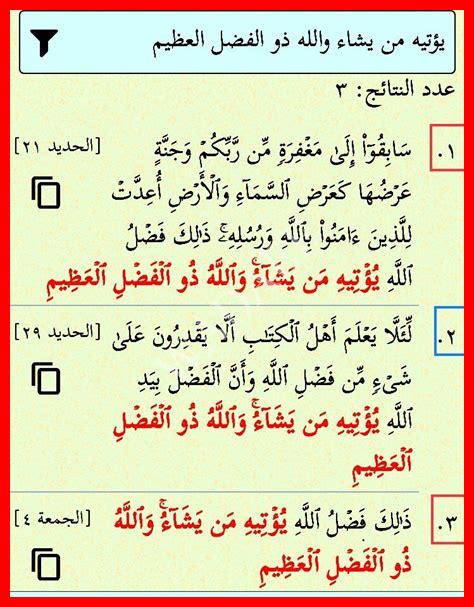 يؤتيه من يشاء والله ذو الفضل العظيم
عدد النتائج: ٣
١. سَابِقُوٓا۟ إِلَىٰ مَغْفِرَةٍۢ مِّن رَّبِّكُمْ وَجَنَّةٍ [الحديد ٢١]
عَرْضُهَا كَعَرْضِ ٱلسَّمَآءِ وَٱلْأَرْضِ أُعِدَّتْ
لِلَّذِينَ ءَامَنُوا۟ بِٱللَّهِ وَرُسُلِهِۦ ۚ ذَٰلِكَ فَضْلُ
ٱللَّهِ يُؤْتِيهِ مَن يَشَآءُ ۚ وَٱللَّهُ ذُو ٱلْفَضْلِ ٱلْعَظِيمِ
٢. لِّئَلَّا يَعْلَمَ أَهْلُ ٱلْكِتَٰبِ أَلَّا يَقْدِرُونَ عَلَىٰ [الحديد ٢٩]
شَىْءٍۢ مِّن فَضْلِ ٱللَّهِ وَأَنَّ ٱلْفَضْلَ بِيَدِ
ٱللَّهِ يُؤْتِيهِ مَن يَشَآءُ ۚ وَٱللَّهُ ذُو ٱلْفَضْلِ
ٱلْعَظِيمِ
٣. ذَٰلِكَ فَضْلُ ٱللَّهِ يُؤْتِيهِ مَن يَشَآءُ ۚ وَٱللَّهُ [الجمعة ٤]
ذُو ٱلْفَضْلِ ٱلْعَظِيمِ